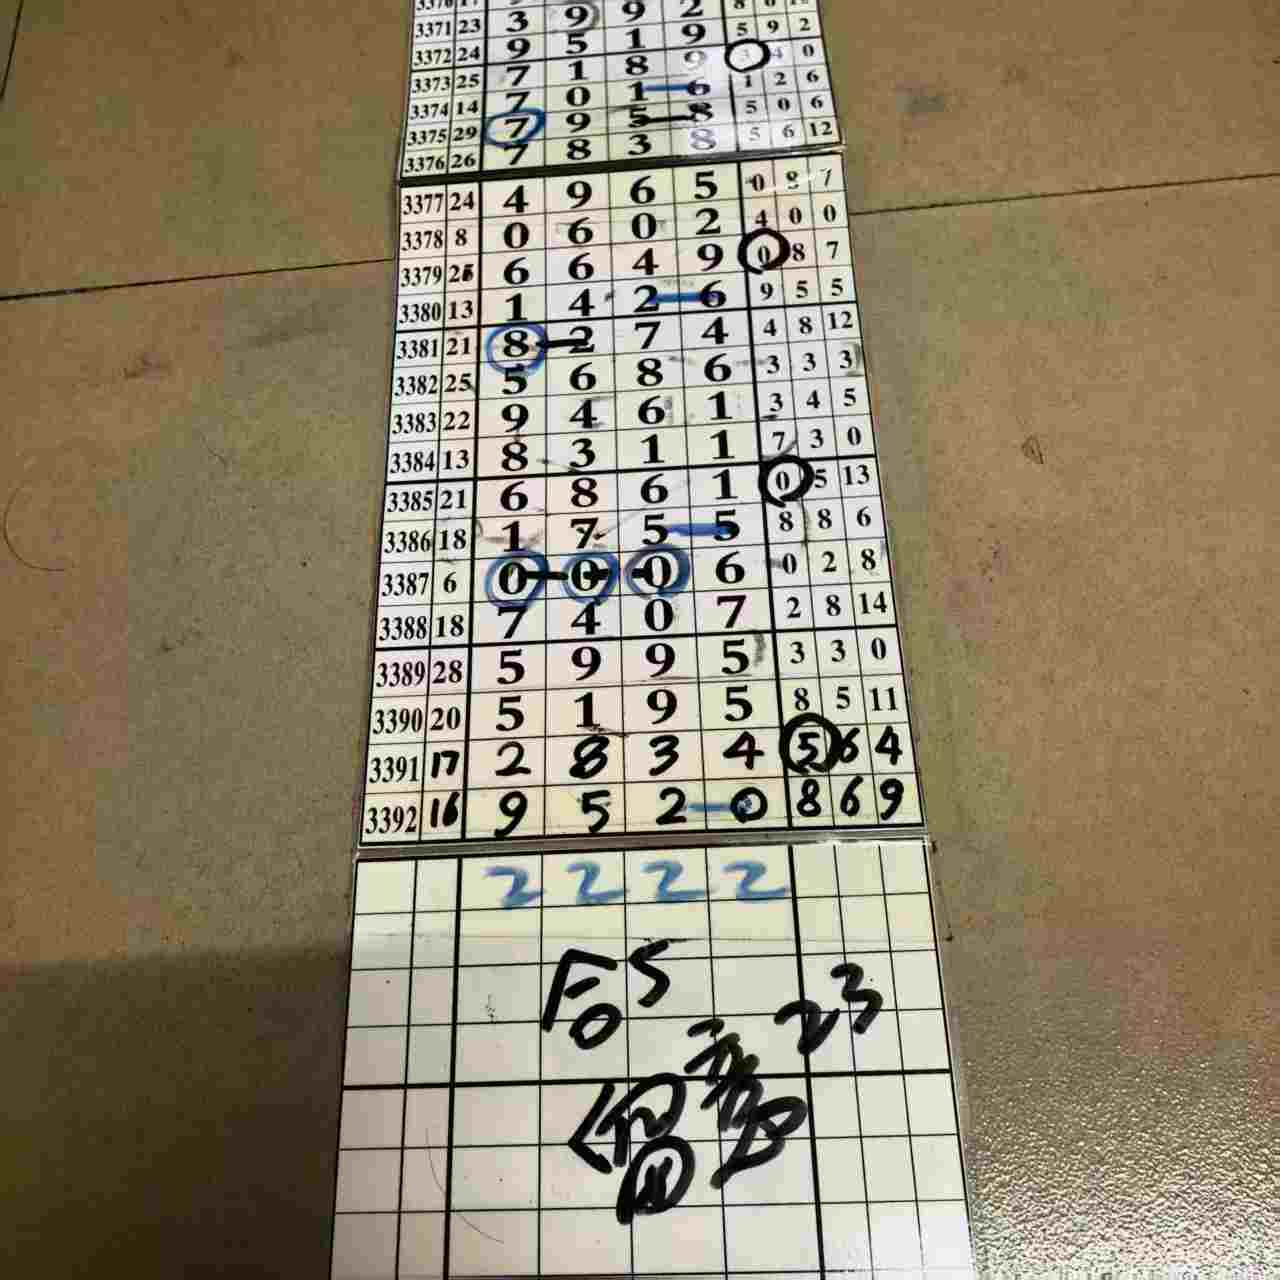 3371 23 3 9 9 2 5 9 2
3372 24 9 5 1 9 3 4 0
3373 25 7 1 8 9 1 2 6
3374 14 7 0 1 6 5 0 6
3375 29 7 9 5 8 5 6 12
3376 26 7 8 3 8
3377 24 4 9 6 5 0 8 7
3378 8 0 6 0 2 4 0 0
3379 25 6 6 4 9 0 8 7
3380 13 1 4 2 6 9 5 5
3381 21 8 2 7 4 4 8 12
3382 25 5 6 8 6 3 3 3
3383 22 9 4 6 1 3 4 5
3384 13 8 3 1 1 7 3 0
3385 21 6 8 6 1 0 5 13
3386 18 1 7 5 5 8 8 6
3387 6 0 0 0 6 0 2 8
3388 18 7 4 0 7 2 8 14
3389 28 5 9 9 5 3 3 0
3390 20 5 1 9 5 8 5 11
3391 17 2 8 3 4 5 6 4
3392 16 9 5 2 0 8 6 9
2 2 2 2
合5
留意 23